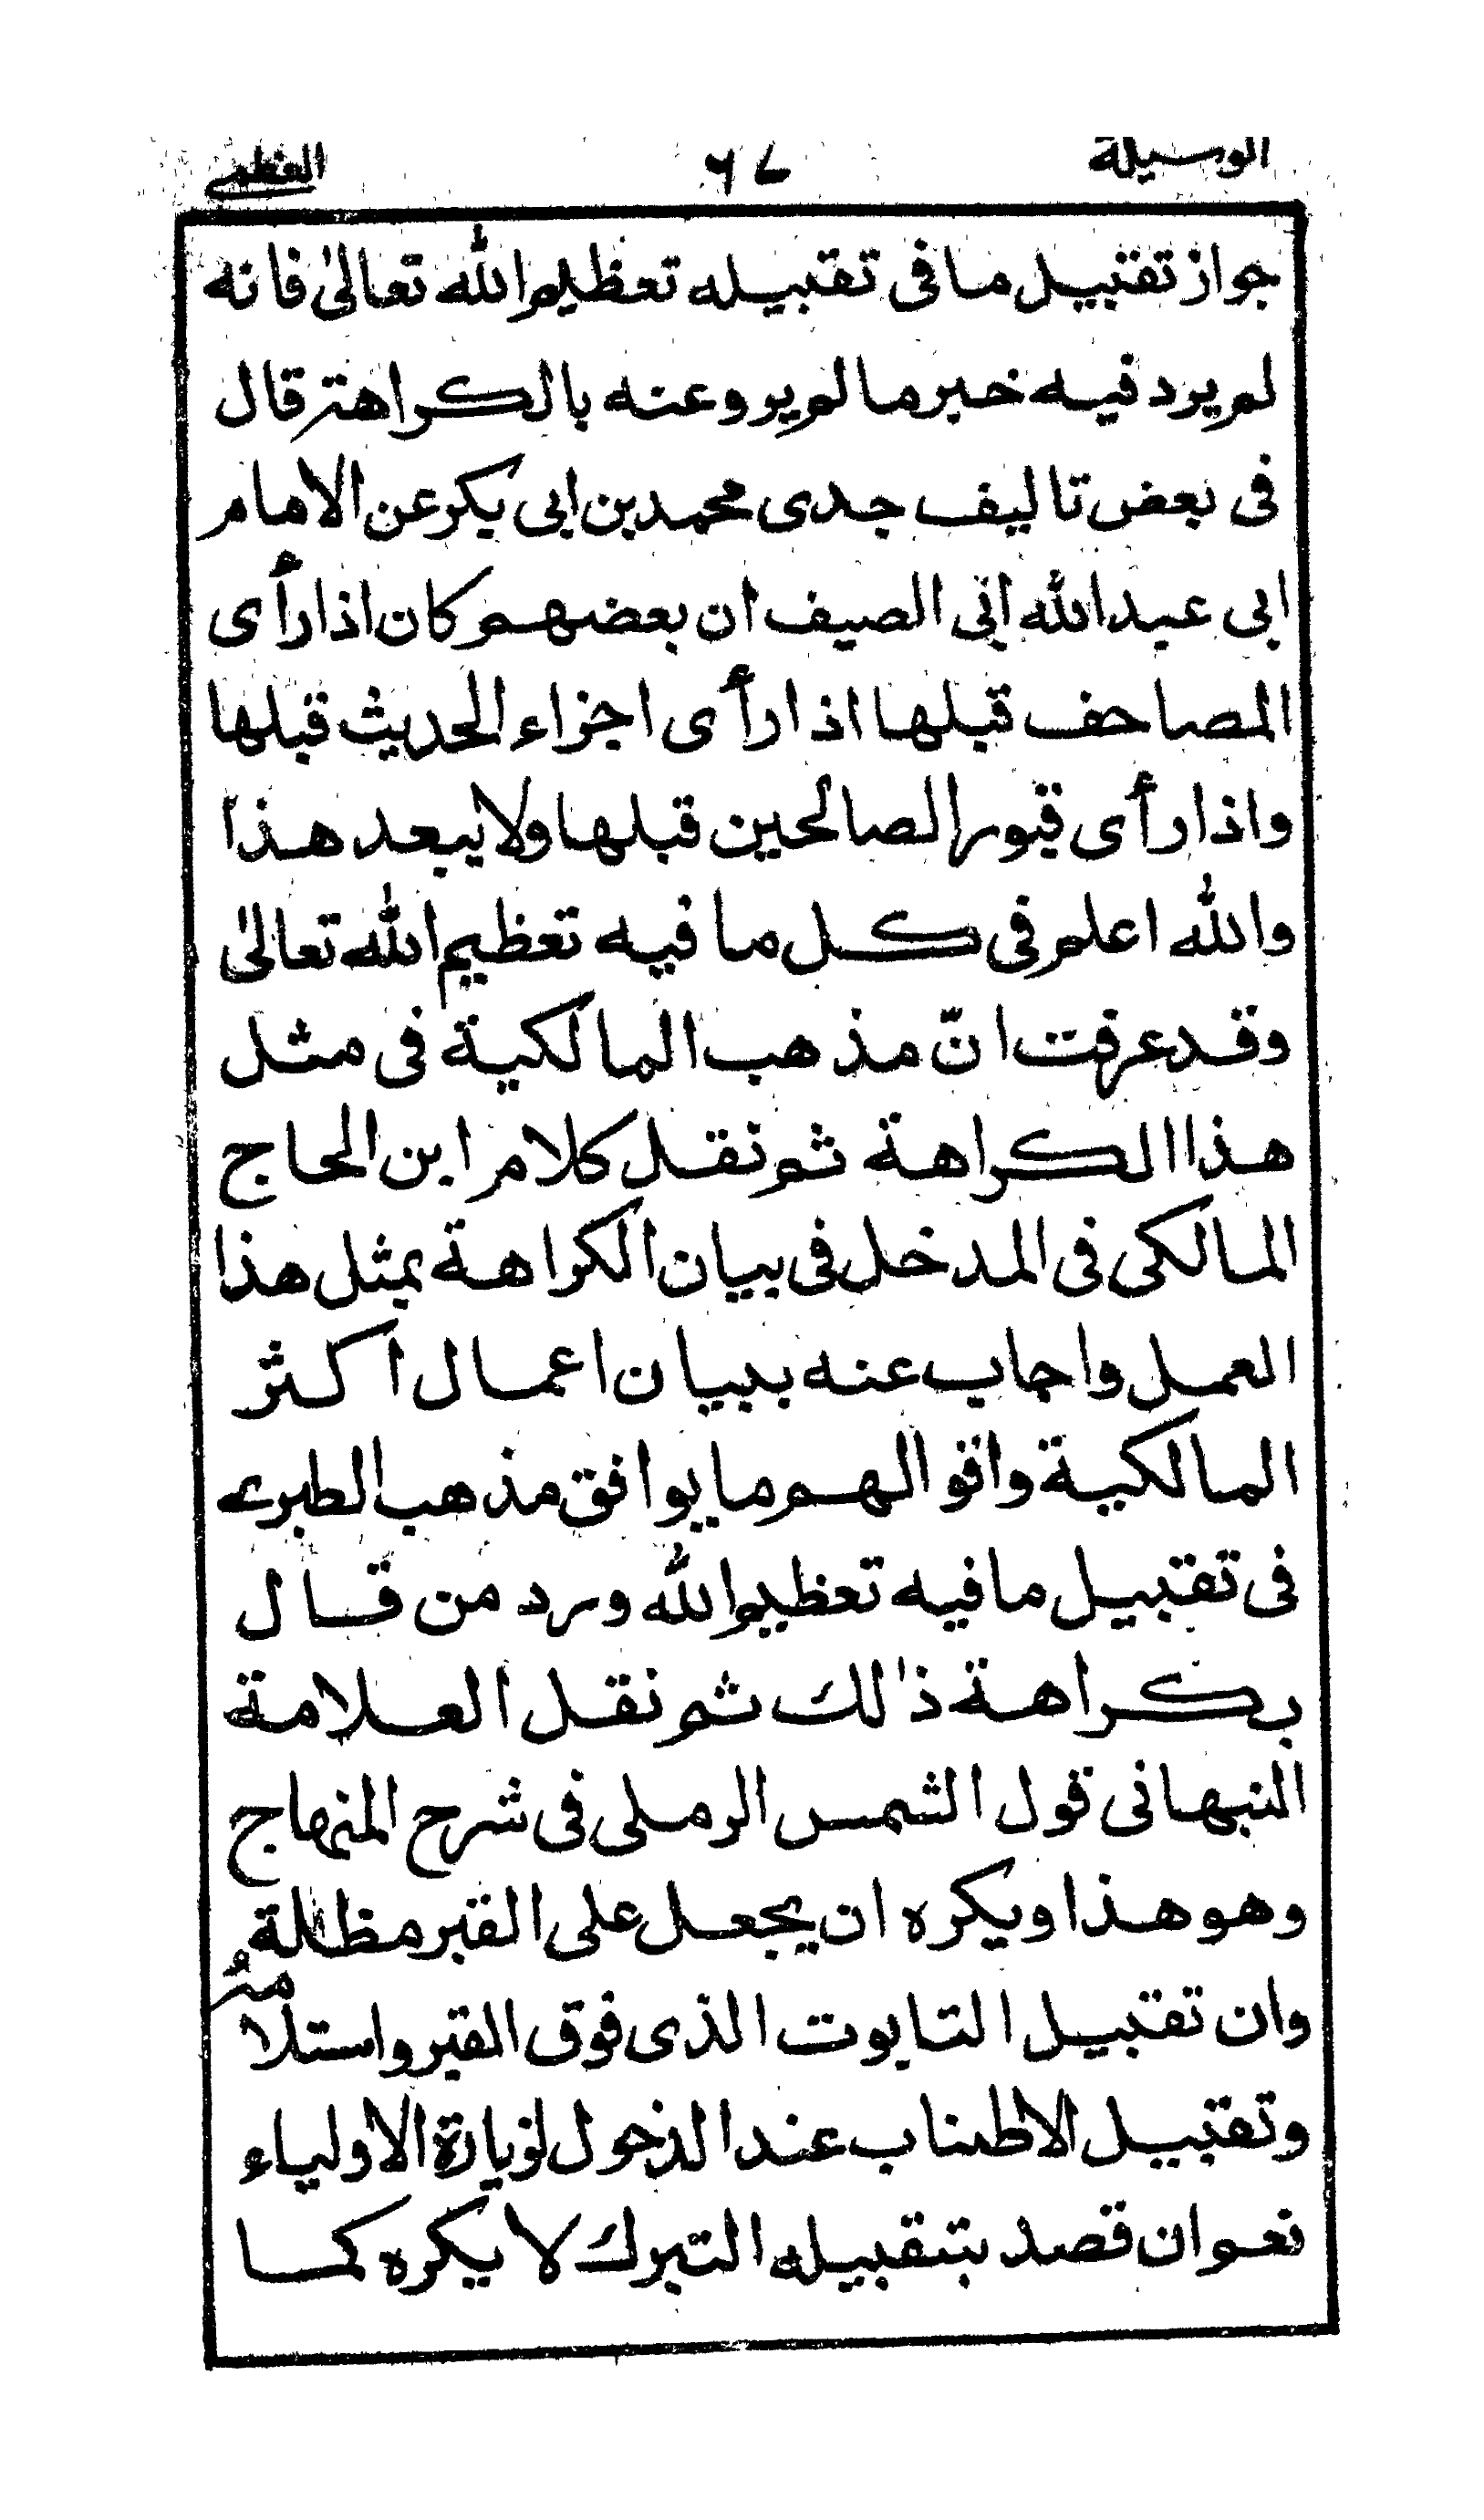 الوسيلة ٦٧ العظمى
جواز تقبيل ما فى تقبيله تعظيم الله تعالىٰ فانه
لم يرد فيه خبر ما لم يرو عنه بالكراهة قال
فى بعض تاليف جدى محمد بن ابى بكر عن الامام
ابى عبد الله ابى الصيف ان بعضهم كان اذا رأى
المصاحف قبلها اذا رأى اجزاء الحديث قبلها
واذا رأى قبور الصالحين قبلها ولا يبعد هذا
والله اعلم فى كل ما فيه تعظيم الله تعالىٰ
وقد عرفت انّ مذهب المالكية فى مثل
هذا الكراهة ثم نقل كلام ابن الحاج
المالكى فى المدخل فى بيان الكراهة بمثل هذا
العمل واجاب عنه ببيان اعمال اكثر
المالكية واقوالهم ما يوافق مذهب الطبرى
فى تقبيل ما فيه تعظيم الله ورد من قال
بكراهة ذالك ثم نقل العلامة
النبهانى قول الشمس الرملى فى شرح المنهاج
وهو هذا ويكره ان يجعل على القبر مظلة
وان تقبيل التابوت الذى فوق القبر واستلامه
وتقبيل الاطناب عند الدخول لزيارة الاولياء
نعم ان قصد بتقبيله التبرك لا يكره كما